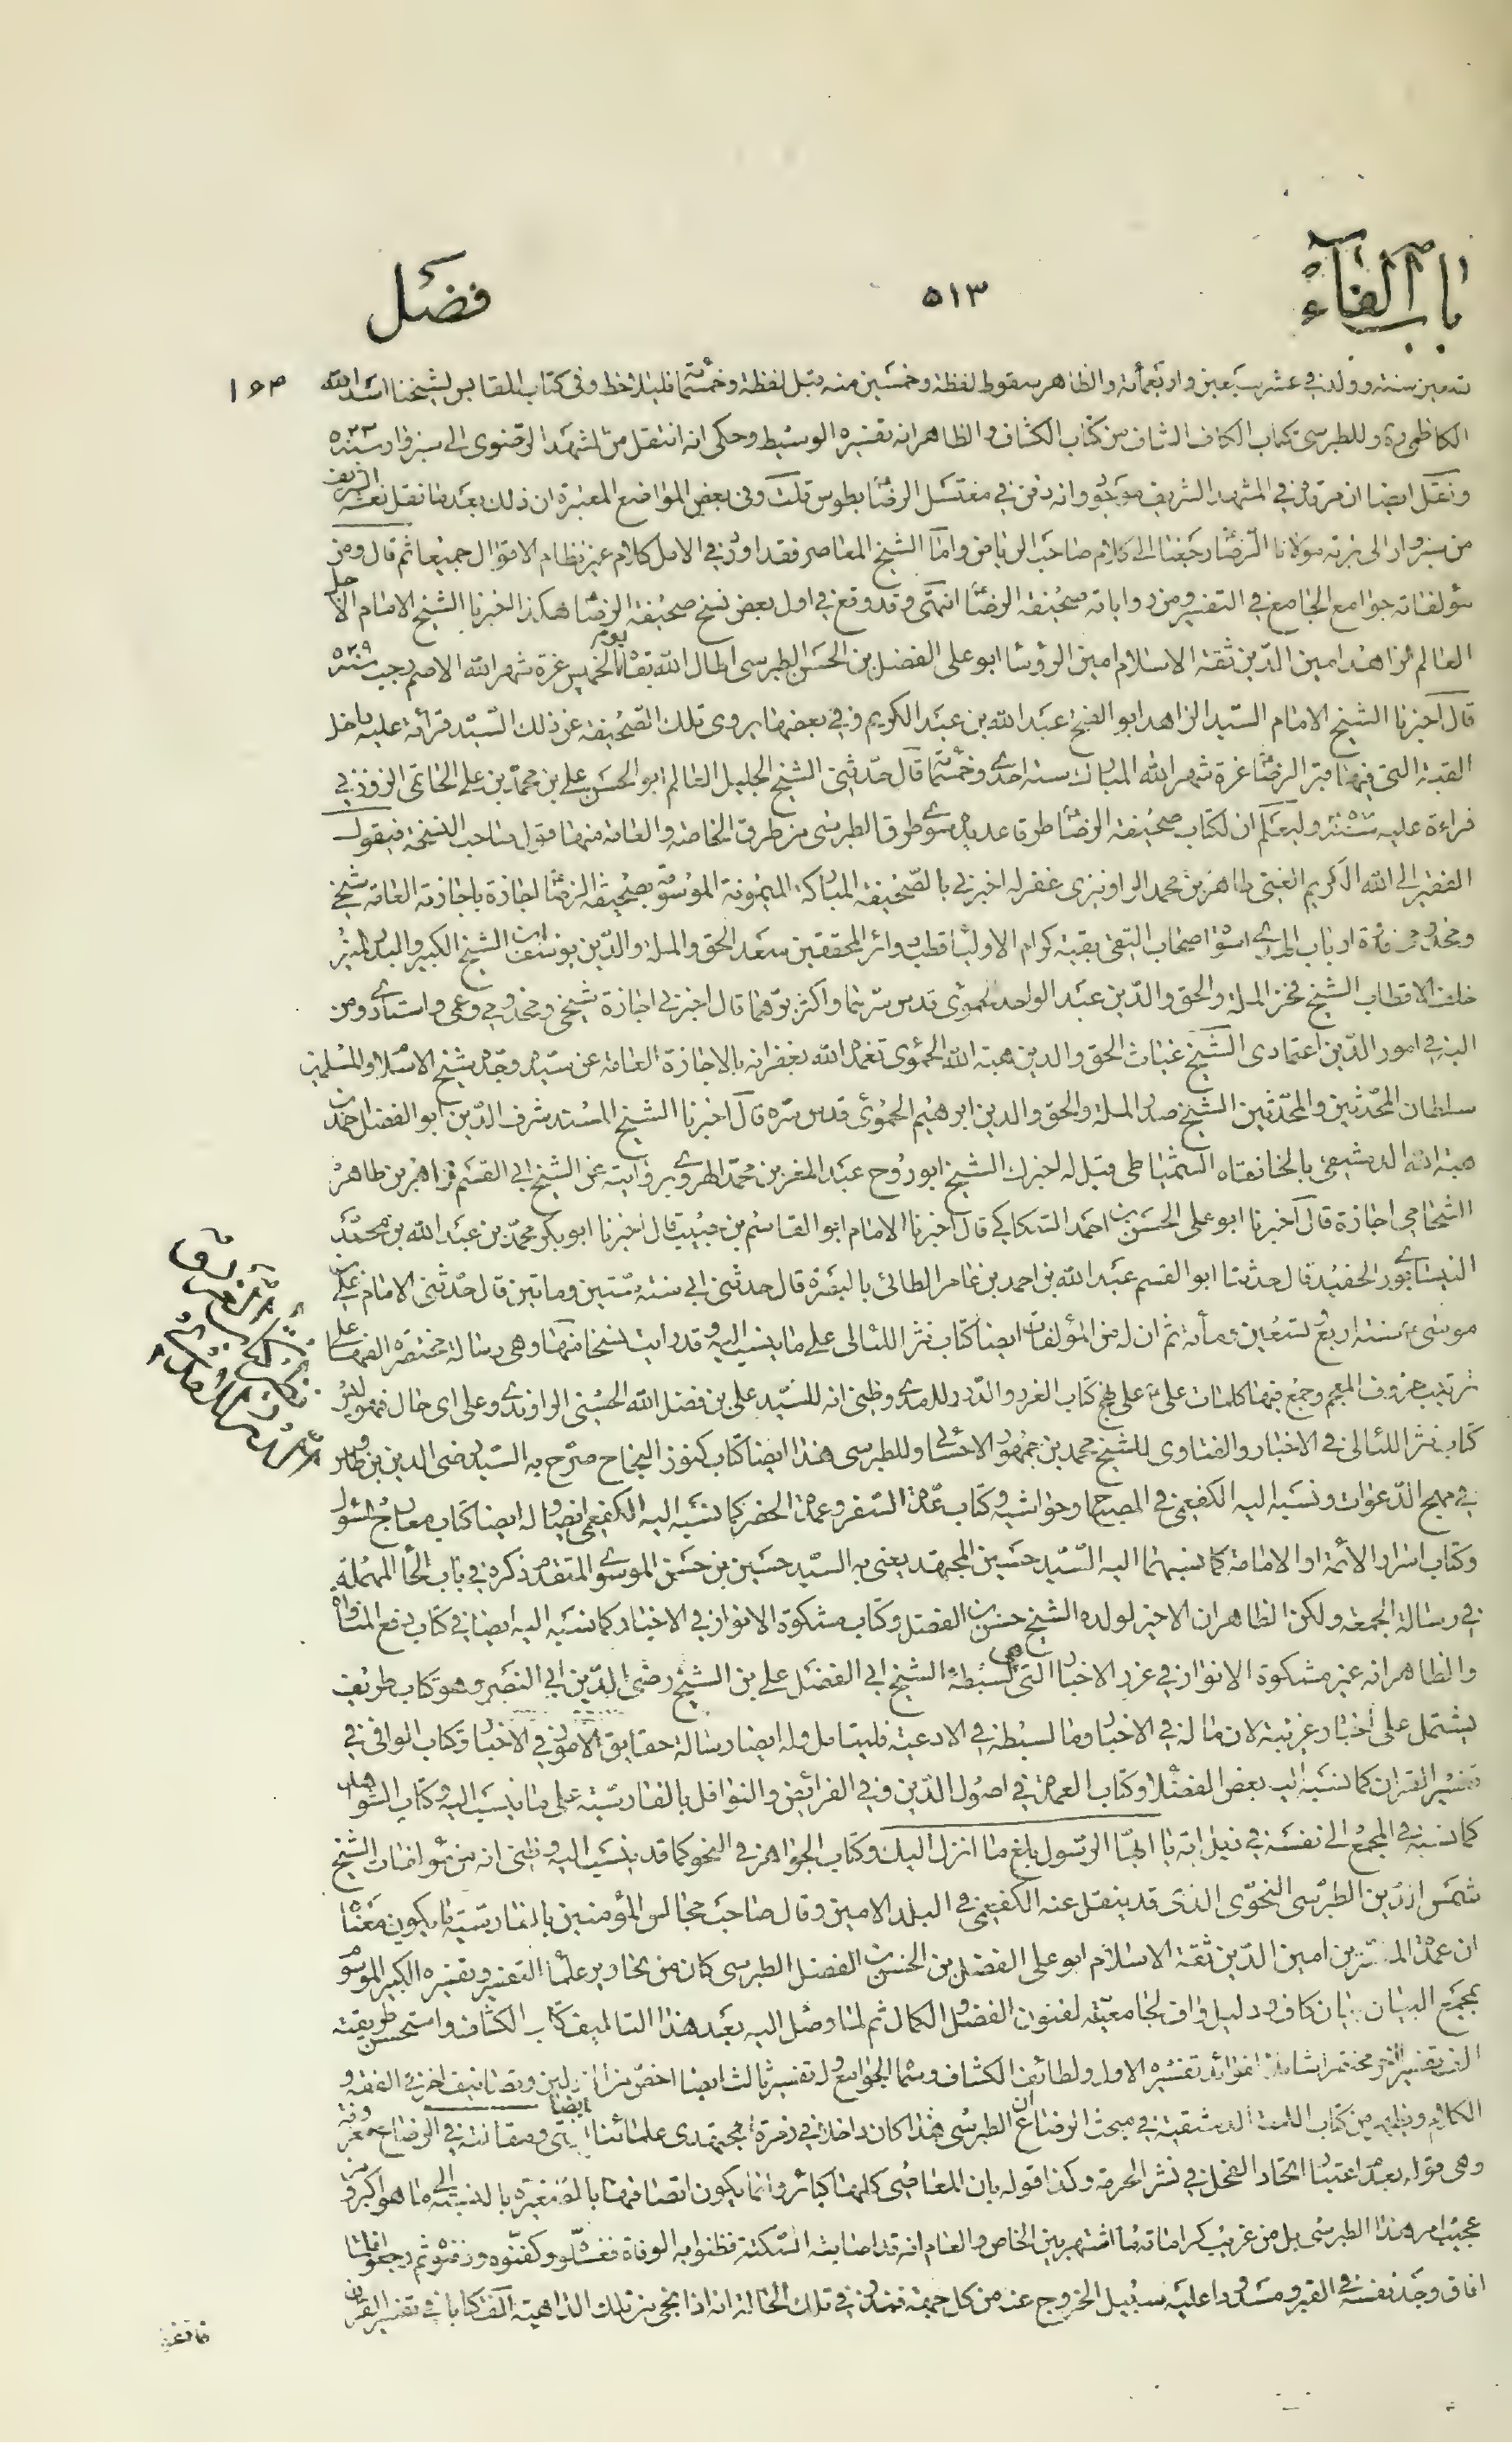 باب الفاء ٥١٣ فضل
تسعين سنة وولد في عشر سبعين واربعمأة والظاهر سقوط لفظة وخمسين منه قبل لفظة وخمسمأة فليلاحظ وفى كتاب المقابس لشيخنا اسد الله
الكاظمى ره وللطبرسى كتاب الكاف الشاف من كتاب الكشاف والظاهر انه تفسيره الوسيط وحكى انه انتقل من المشهد الرضوى الى سبزوار سنة ٥٢٣
ونقل ايضا ان مرقده في المشهد الشريف موجود وانه دفن في مغتسل الرضا بطوس قلت وفى بعض المواضع المعتبرة ان ذلك بعد ما نقل نعشه الشريف
من سبزوار الى تربة مولانا الرضا رجعنا الى كلام صاحب الرياض واما الشيخ المعاصر فقد اورد في الامل كلام غير نظام الاقوال جميعا ثم قال ومن
مؤلفاته جوامع الجامع في التفسير ومن رواياته صحيفة الرضا انتهى وقد وقع في اول بعض نسخ صحيفة الرضا هكذا اخبرنا الشيخ الامام الاجل
العالم الزاهد امين الدين ثقة الاسلام امين الرؤسا ابو على الفضل بن الحسن الطبرسى اطال الله بقاه يوم الخميس غرة شهر الله الاصم رجب سنة ٥٢٩
قال اخبرنا الشيخ الامام السيد الزاهد ابو الفتح عبد الله بن عبد الكريم وفي بعضها يروى تلك الصحيفة عن ذلك السيد قرائة عليه داخل
القبة التى فيها قبر الرضا غرة شهر الله المبارك سنة احدى وخمسمأة قال حدثنى الشيخ الجليل العالم ابو الحسن على بن محمد بن على الحاتمى الزوزنى
قراءة عليه سنة وليعلم ان لكتاب صحيفة الرضا طرقا عديدة سوى طرق الطبرسى من طرق الخاصة والعامة منها قول صاحب النسخة فيقول
الفقير الى الله الكريم الغنى طاهر بن محمد الراونيزى غفر له اخبرنى بالصحيفة المباركة الميمونة الموسومة بصحيفة الرضا اجازة باجازته العامة شيخى
ومخدومى قدوة ارباب الهدى اسوة اصحاب التقى بقية كرام الاوليا قطب دوائر المحققين سعد الحق والملة والدين يوسف بن الشيخ الكبير والبدر المنير
خلف الاقطاب الشيخ فخر الملة والحق والدين عبد الواحد الحموى قدس سرهما واكثر برهما قال اخبرنى اجازة شيخى ومخدومى وعمى واستادى ومن
اليه في امور الدين اعتمادى الشيخ غياث الحق والدين هبة الله الحموى تغمده الله بغفرانه بالاجازة العامة عن سيده وجده شيخ الاسلام والمسلمين
سلطان المحدثين والمحدثين الشيخ صدر الملة والحق والدين ابرهيم الحموى قدس سره قال اخبرنا الشيخ المسند شرف الدين ابو الفضل احمد بن
هبة الله الدمشقى بالخانقاه السميساطى قيل له اخبرك الشيخ ابو روح عبد المعز بن محمد الهروى بروايته عن الشيخ ابى القسم زاهر بن طاهر
الشحامى اجازة قال اخبرنا ابو على الحسن بن احمد السكاكى قال اخبرنا الامام ابو القاسم بن حبيب قال اخبرنا ابو بكر محمد بن عبد الله بن محمد
النيسابورى الحفيد قال حدثنا ابو القسم عبد الله بن احمد بن عامر الطائى بالبصرة قال حدثنى ابى سنة ستين وماتين قال حدثنى الامام على بن
موسى ع سنة اربع وتسعين ومأة ثم ان له من المؤلفات ايضا كتاب نثر اللئالى على ما ينسب اليه وقد رايت نسخا منها وهى رسالة مختصرة الفها على
ترتيب حروف المعجم وجمع فيها كلمات على ع على نهج كتاب الغرر والدرر للامدى وظنى انه للسيد على بن فضل الله الحسنى الراوندى وعلى اى حال فهو غير
كتاب نثر اللئالى في الاخبار والفتاوى للشيخ محمد بن جمهور الاحسائى وللطبرسى هذا ايضا كتاب كنوز النجاح صرح به السيد رضى الدين بن طاوس
في مهج الدعوات ونسبه اليه الكفعمى في المصباح وحواشيه وكتاب عدة السفر وعمدة الحضر كما نسبه اليه الكفعمى ايضا وله ايضا كتاب معارج السؤل
وكتاب اسرار الأئمة او الامامة كما نسبهما اليه السيد حسين المجتهد يعنى به السيد حسين بن حسن الموسوى المتقدم ذكره في باب الحا المهملة
في رسالة الجمعة ولكن الظاهر ان الاخير لولده الشيخ حسن بن الفضل وكتاب مشكوة الانوار في الاخبار كما نسبه اليه ايضا في كتاب دفع المناواة
والظاهر انه غير مشكوة الانوار في غرر الاخبار التى هى لسبطه الشيخ ابى الفضل على بن الشيخ رضى الدين ابى النصر وهو كتاب ظريف
يشتمل على اخبار غريبة لان ما له في الاخبار وما لسبطه في الادعية فليتامل وله ايضا رسالة حقايق الامور في الاخبار وكتاب الوافى في
تفسير القران كما نسبه اليه بعض الفضلا وكتاب العمدة في اصول الدين وفي الفرائض والنوافل بالفارسية على ما ينسب اليه وكتاب الشواهد
كما نسبه في المجمع الى نفسه في ذيل اية يا ايها الرسول بلغ ما انزل اليك وكتاب الجواهر في النحو كما قد ينسب اليه وظنى انه من مؤلفات الشيخ
شمس الدين الطبرسى النحوى الذى قد ينقل عنه الكفعمى في البلد الامين وقال صاحب مجالس المؤمنين بالفارسية ما يكون معناه
ان عمدة المفسرين امين الدين ثقة الاسلام ابو على الفضل بن الحسن بن الفضل الطبرسى كان من نحارير علما التفسير وتفسيره الكبير الموسوم
بمجمع البيان بيان كاف ودليل واف لجامعيته لفنون الفضل والكمال ثم لما وصل اليه بعد هذا التاليف كتاب الكشاف واستحسن طريقته
الف تفسيرا اخر مختصرا شاملا لفوائد تفسيره الاول ولطائف الكشاف وسماه الجوامع وله تفسير ثالث ايضا اخصر من الاولين وتصانيف اخر في الفقه و
الكلام ويظهر من كتاب اللمعة الدمشقية في مبحث الرضاع ان الطبرسى هذا كان داخلا في زمرة مجتهدى علمائنا ايضا انتهى ومقالته في الرضاع معروفة
وهى قوله بعدم اعتبار اتحاد الفحل في نشر الحرمة وكذا قوله بان المعاصى كلها كبائر وانما يكون اتصافها بالصغيرة بالنسبة الى ما هو اكبر ومن
عجيب امر هذا الطبرسى بل من غريب كراماته ما اشتهر بين الخاص والعام انه قد اصابته السكتة فظنوا به الوفاة فغسلوه وكفنوه ودفنوه ثم رجعوا فلما
افاق وجد نفسه في القبر ومسدودا عليه سبيل الخروج عنه من كل جهة فنذر في تلك الحالة انه اذا نجى من تلك الداهية الف كتابا في تفسير القران